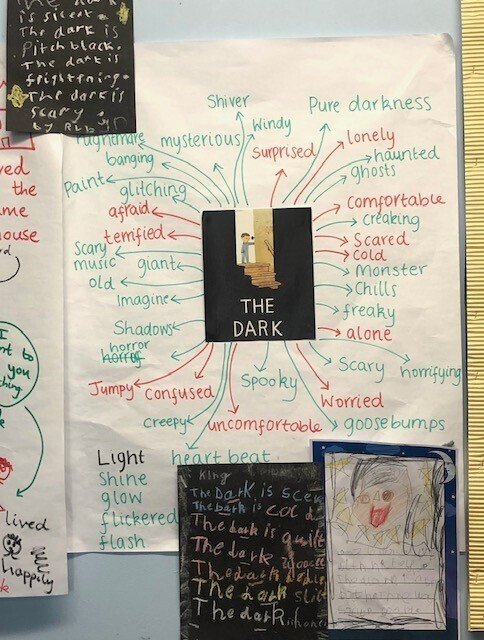 is silent.
The dark is
Pitch black.
The dark is
frightning.
The dark is
scary.
by
Shiver
Windy
Pure darkness
nightmare
mysterious
Surprised
lonely
banging
haunted
ghosts
Paint
glitching
comfortable
afraid
creaking
terrified
Scared
cold
Scary
music
giant
Monster
old
Chills
Imagine
freaky
THE
DARK
Shadows
alone
horror
horror
Spooky
Scary
horrifying
Jumpy
Confused
Worried
creepy
uncomfortable
goosebumps
heart beat
Light
Shine
glow
flickered
flash
King
The Dark is
The Dark is cold
The dark is
The dark
The dark
The dark
The dark
the
ouse
I
to
you
lived
happily